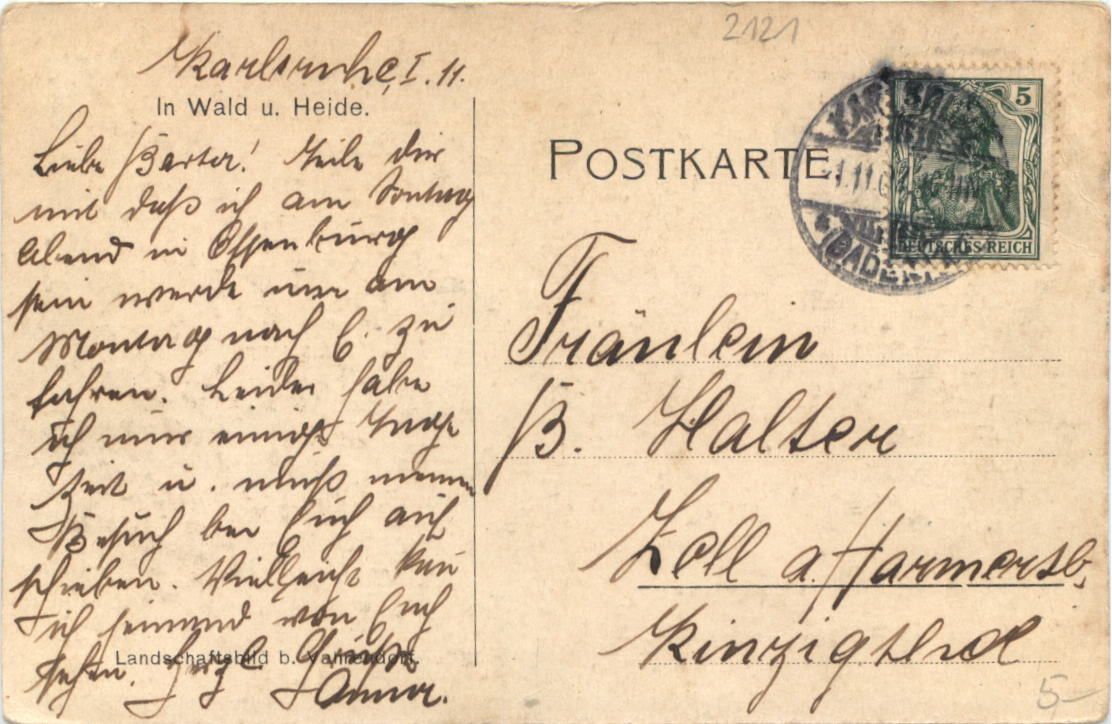 2121
Karlsruhe, I. 11.
In Wald u. Heide.
Liebe Berta! Teile dir
mit daß ich am Sontag
Abend in Offenburg
sein werde um am
Montag nach C. zu
fahren. Leider habe
ich nur einige Tage
Zeit u. muß meinen
Besuch bei Euch auf
schieben. Vielleicht kan
ich jemand von Euch
sehen. Herzl. Grüße
Anna.
Landschaftsbild b.
POSTKARTE
5
DEUTSCHES REICH
(BADEN)
Fräulein
B. Halter
Zell a. Harmersb.
Kinzigthal
5-